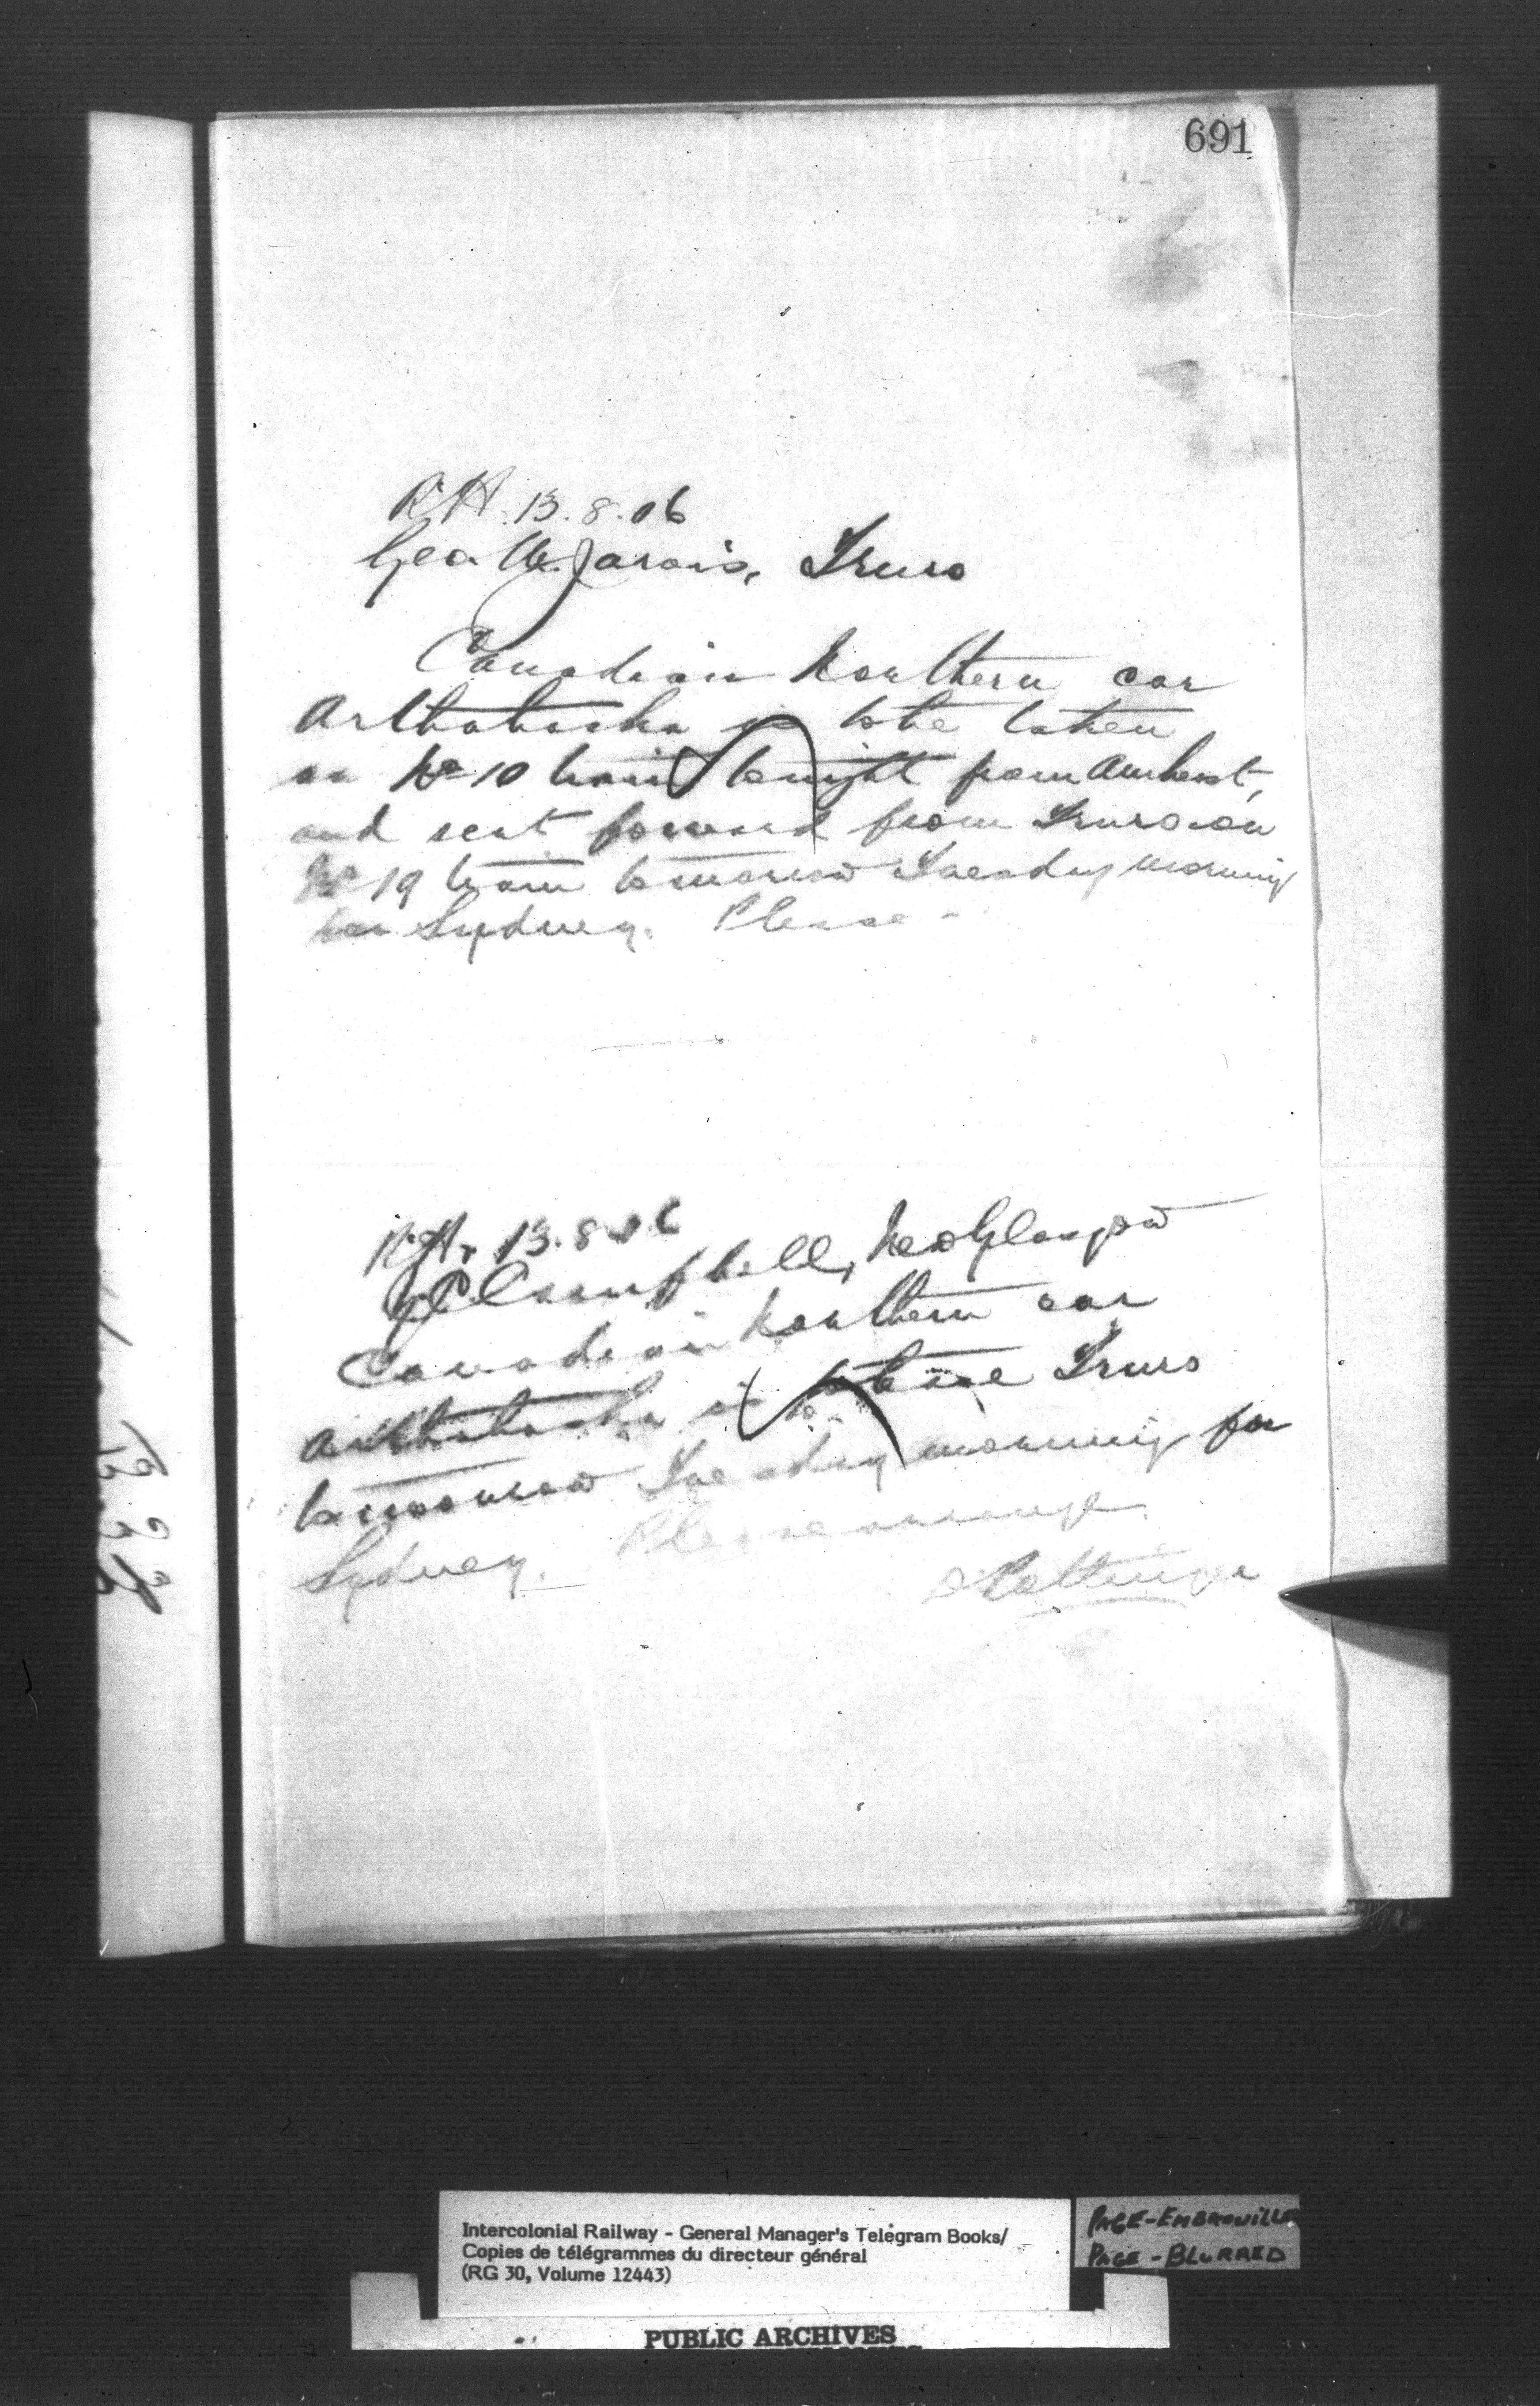 691
R.H. 13.8.06
Geo. W. Jarvis, Truro
Canadian Northern car
Arthabaska is to be taken
on No 10 train tonight from Amherst,
and sent forward from Truro on
No 19 train tomorrow Tuesday morning
for Sydney. Please -
R.H. 13.8.06
Campbell, New Glasgow
Canadian Northern car
Arthabaska is to leave Truro
tomorrow Tuesday morning for
Sydney. Please arrange.
D Pottinger
Intercolonial Railway - General Manager's Telegram Books/
Copies de télégrammes du directeur général
(RG 30, Volume 12443)
PAGE-EMBROUILLEE
PAGE-BLURRED
PUBLIC ARCHIVES